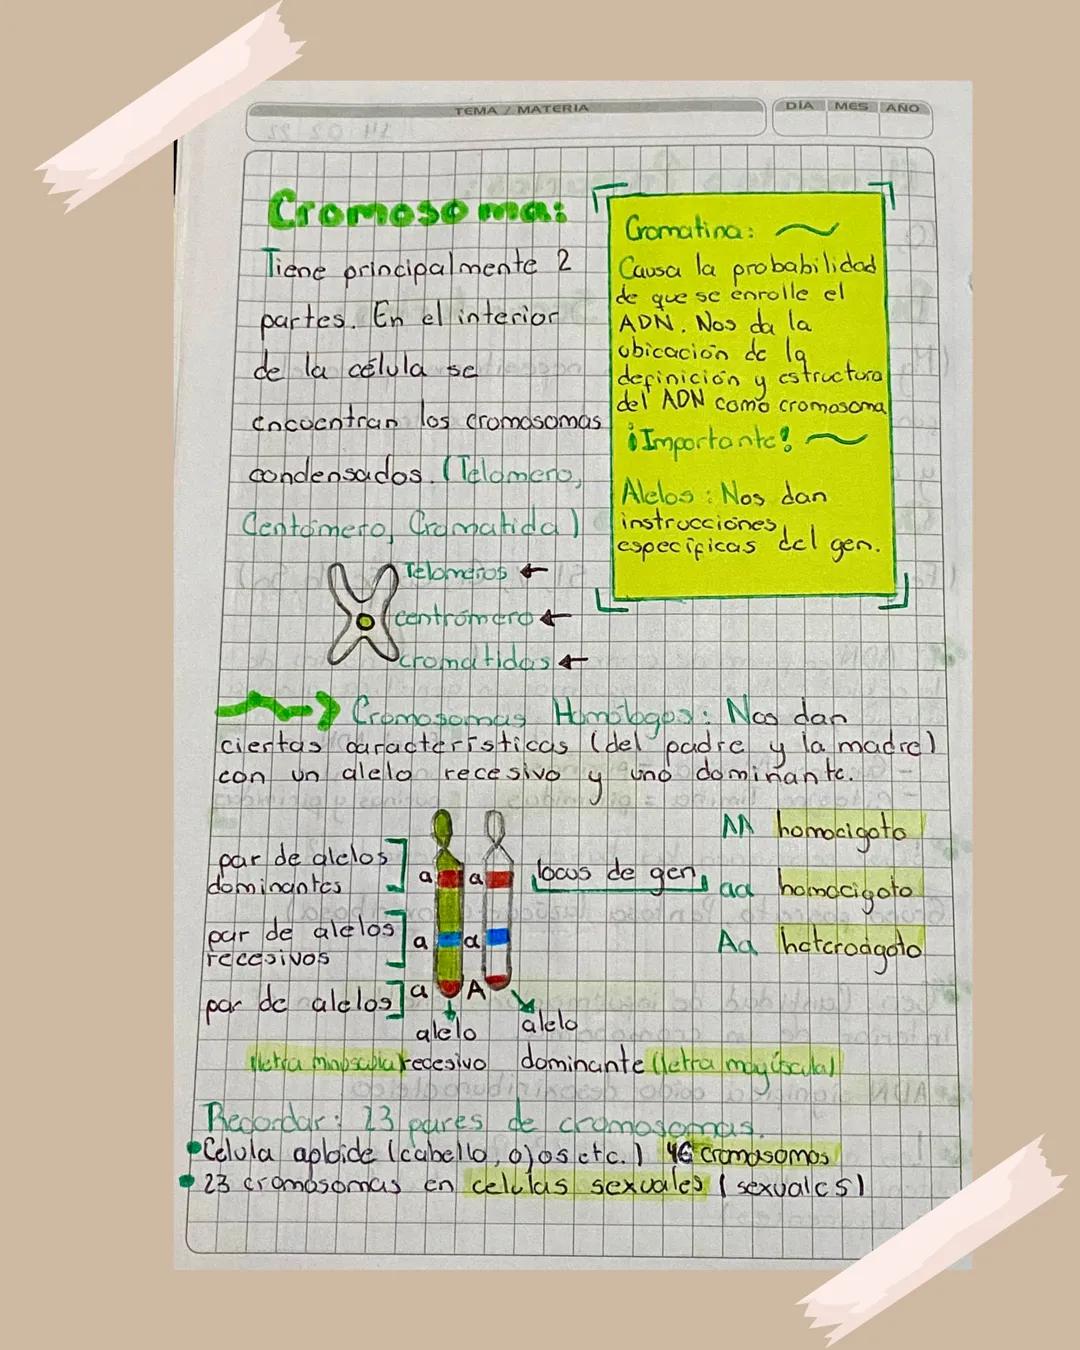 TEMA / MATERIA
DÍA MES AÑO
Cromosoma:
Tiene principalmente 2
partes. En el interior
de la célula se
encuentran los cromosomas
condensados. (Telomero,
Centómero, Cromatida)
Telomeros
centrómero
cromatidas
Cromatina:
Causa la probabilidad
de que se enrolle el
ADN. Nos da la
ubicación de la
definición y estructura
del ADN como cromosoma
¡Importante!
Alelos: Nos dan
instrucciones
especificas del gen.
Cromosomas Homólogos: Nos dan
ciertas características (del padre y la madre)
con un alelo recesivo y uno dominante.
par de alelos
dominantes
a a
locus de gen
par de alelos
recesivos
a a
par de alelos
a A
alelo
recesivo
letra minúscula
alelo
dominante (letra mayúscula)
AA homocigoto
aa homocigoto
Aa heterocigoto
Recordar: 23 pares de cromosomas.
Celula aploide (cabello, ojos etc.) 46 cromosomas
23 cromosomas en celulas sexuales (sexuales)